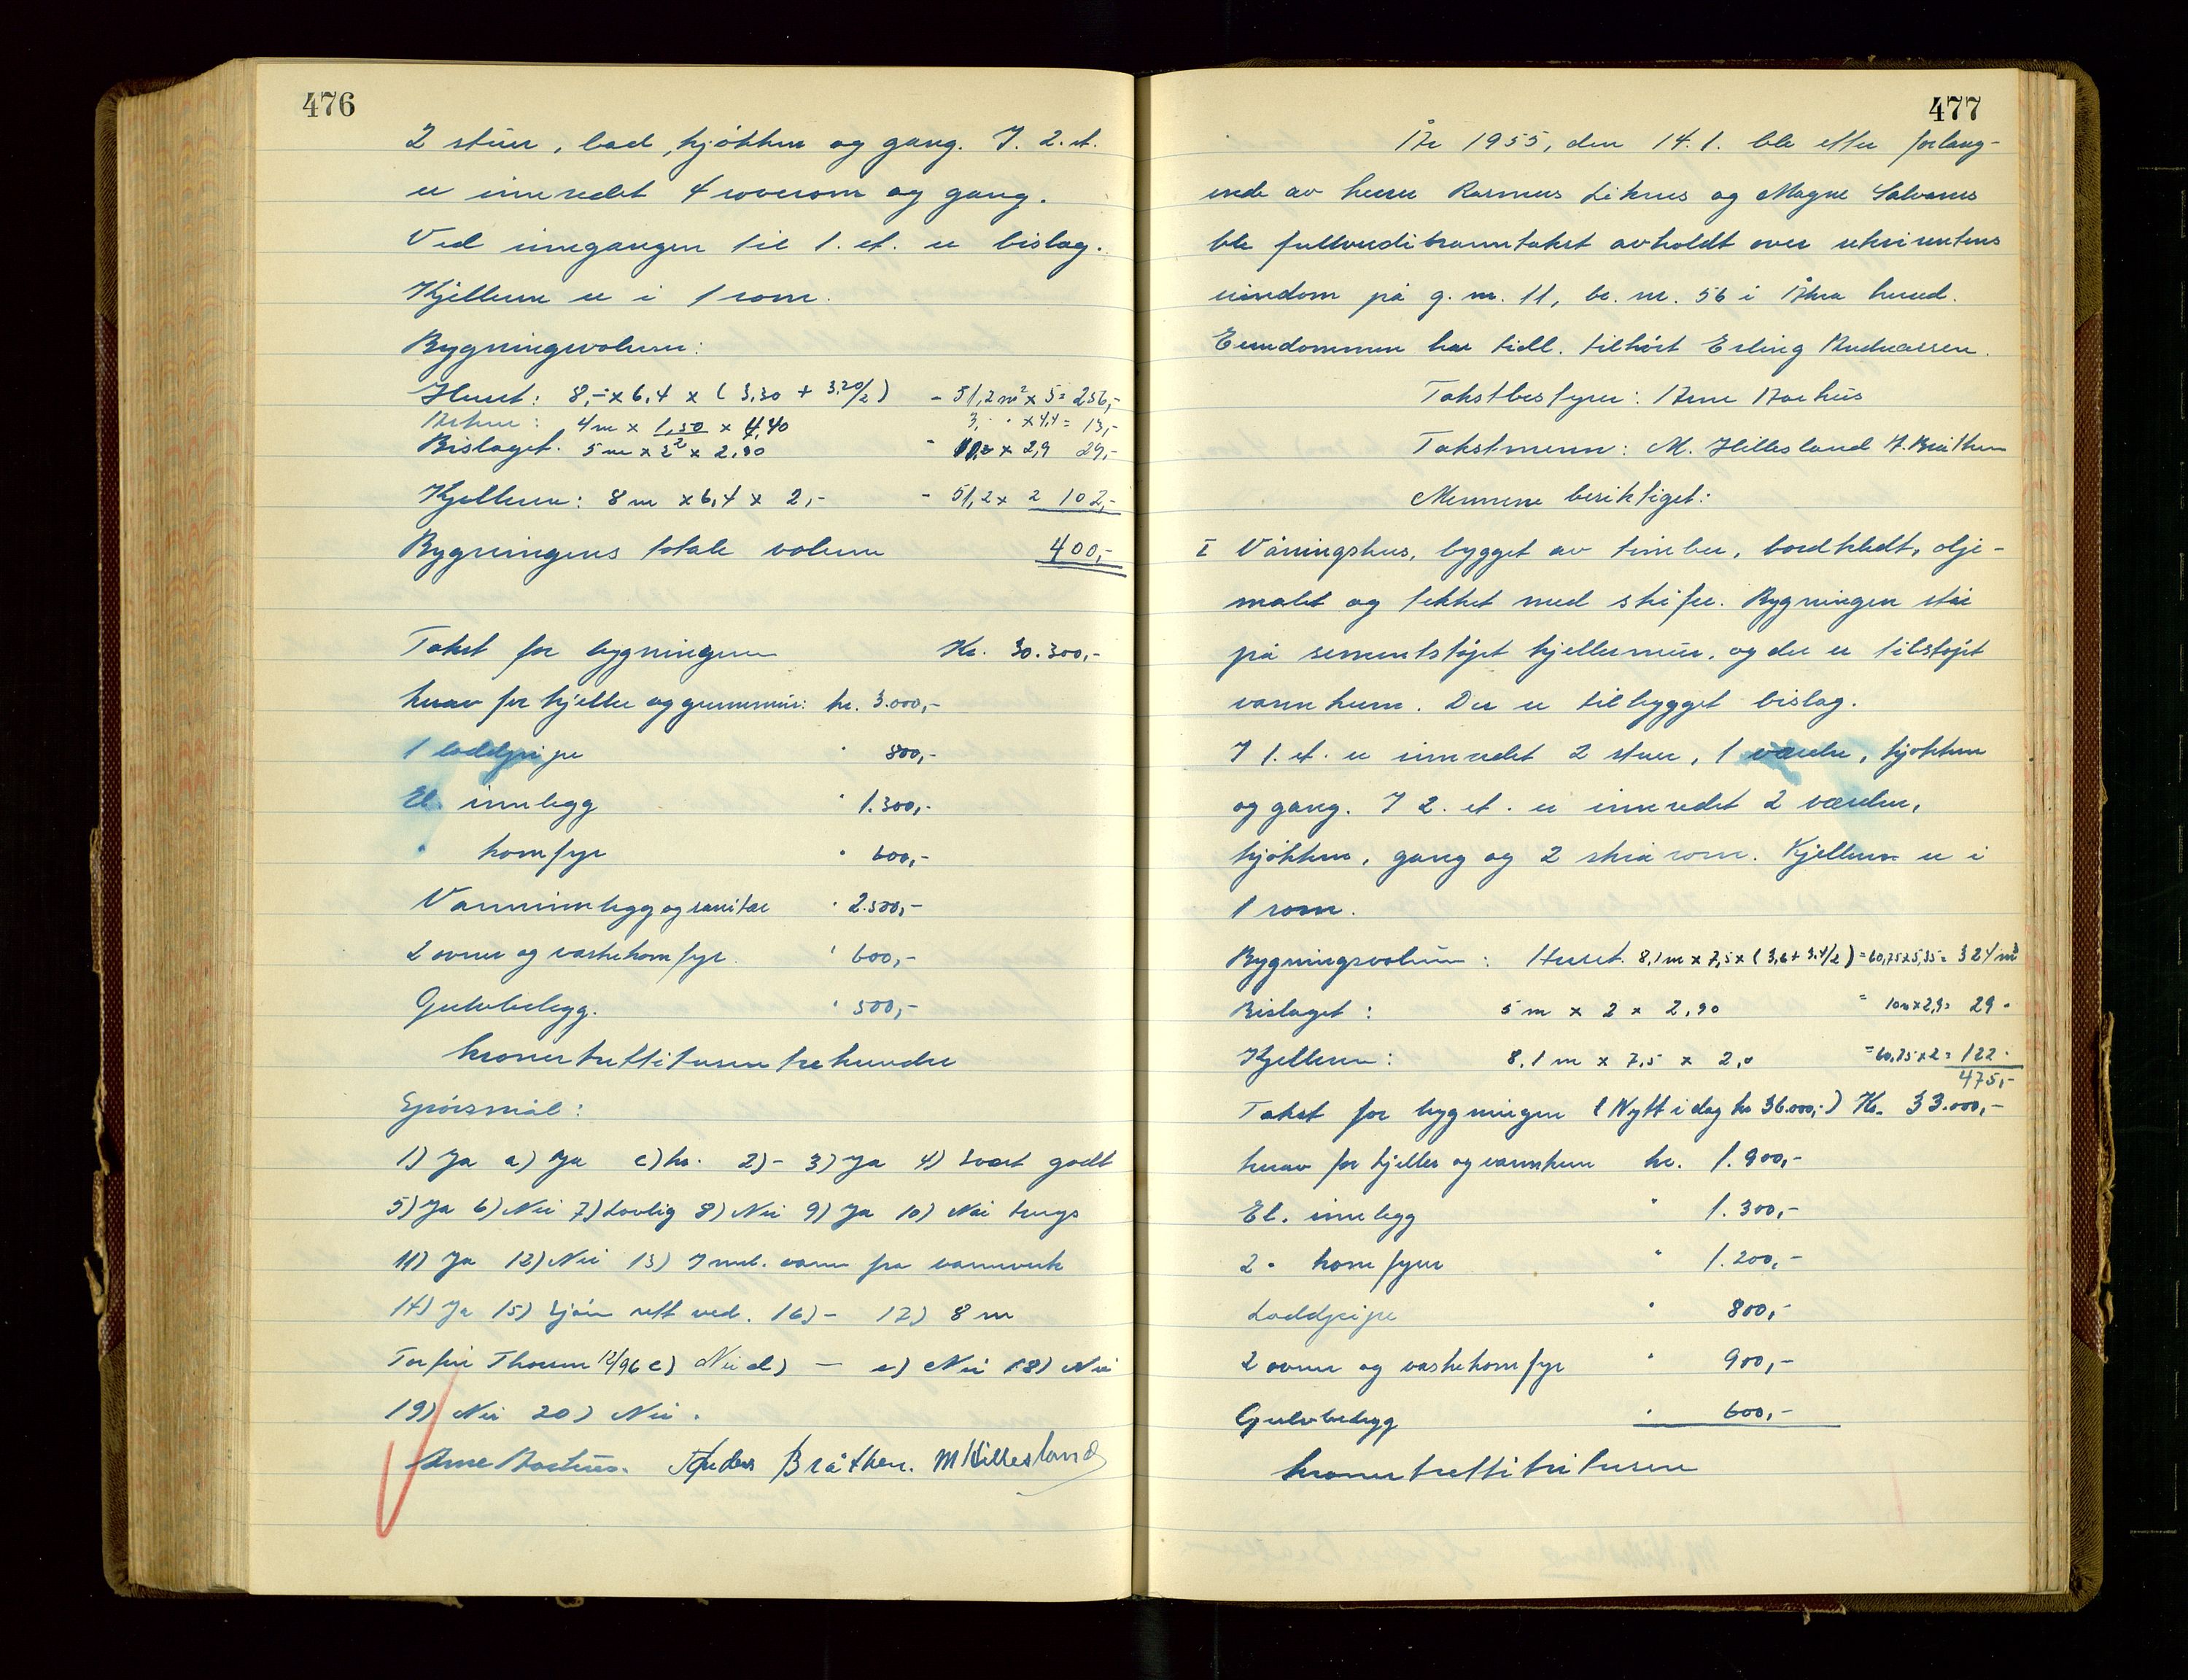 476
2 stuer, bad, kjökken og gang. I. 2. et.
er innredet 4 soverom og gang.
Ved inngangen til 1. et. er bislag.
Kjelleren er i 1 rom.
Bygningsvolum:
Huset: 8,- x 6,4 x (3,30 + 3,20/2) - 51,2 m² x 5 = 256,-
Arken: 4 m x 1,50/2 x 4,40 3, " x 4,4 = 13,-
Bislaget. 5 m x 2 x 2,90 " 10,- x 2,9 29,-
Kjelleren: 8 m x 6,4 x 2,- - 51,2 x 2 102,-
Bygningens totale volum 400,-
Takst for bygningen Kr. 30.300,-
herav for kjeller og grunnmur: kr. 3.000,-
1 loddpipe " 800,-
El. innlegg " 1.300,-
" komfyr " 600,-
Vanninnlegg og sanitær " 2.500,-
2 ovner og vaskekomfyr. " 600,-
Gulvbelegg. " 500,-
kroner trettitusen trehundre
Spörsmål:
1) Ja a) Ja c) kr. 2) - 3) Ja 4) Svært godt
5) Ja 6) Nei 7) Lovlig 8) Nei 9) Ja 10) Nei
11) Ja 12) Nei 13) Innl. vann fra vannverk
14) Ja 15) Sjöen rett ved. 16) - 17) 8 m
12/96 c) Nei d) — e) Nei 18) Nei
19) Nei 20) Nei.
Arne Aarhus. Anders Bråthen. M Hillesland
477
År 1955, den 14. 1. ble etter forlang-
ende av herrer Rasmus Liknes og Magne Salvanes
ble fullverdibranntakst avholdt over rekvirentens
eiendom på g. nr. 11, br. nr. 56 i Åkra herred.
Eiendommen har tidl. tilhört Erling Andreassen.
Takstbestyrer: Arne Aarhus
Takstmenn: M. Hillesland A. Bråthen
Mennene besiktiget:
I Våningshus, bygget av timber, bordkledt, olje-
malet og tekket med skifer. Bygningen står
på sementstöpt kjellermur, og der er tilstöpt
vannkum. Der er tilbygget bislag.
I 1. et. er innredet 2 stuer, 1 værelse, kjökken
og gang. I 2. et. er innredet 2 værelser,
kjökken, gang og 2 skrå rom. Kjelleren er i
1 rom.
Bygningsvolum: Huset. 8,1 m x 7,5 x (3,6 + 3.4/2) = 60,75 x 5,35 = 324 m³
Bislaget: 5 m x 2 x 2,90 = 10 m x 2,9 = 29 -
Kjelleren: 8,1 m x 7,5 x 2,0 = 60,75 x 2 = 122 -
475,-
Takst for bygningen (Nytt i dag kr 36.000,-) Kr. 33.000,-
herav for kjeller og vannkum kr. 1.900,-
El. innlegg " 1.300,-
2 " komfyrer " 1.200,-
Loddpipe " 800,-
2 ovner og vaskekomfyr " 900,-
Gulvbelegg " 600,-
kroner trettitretusen